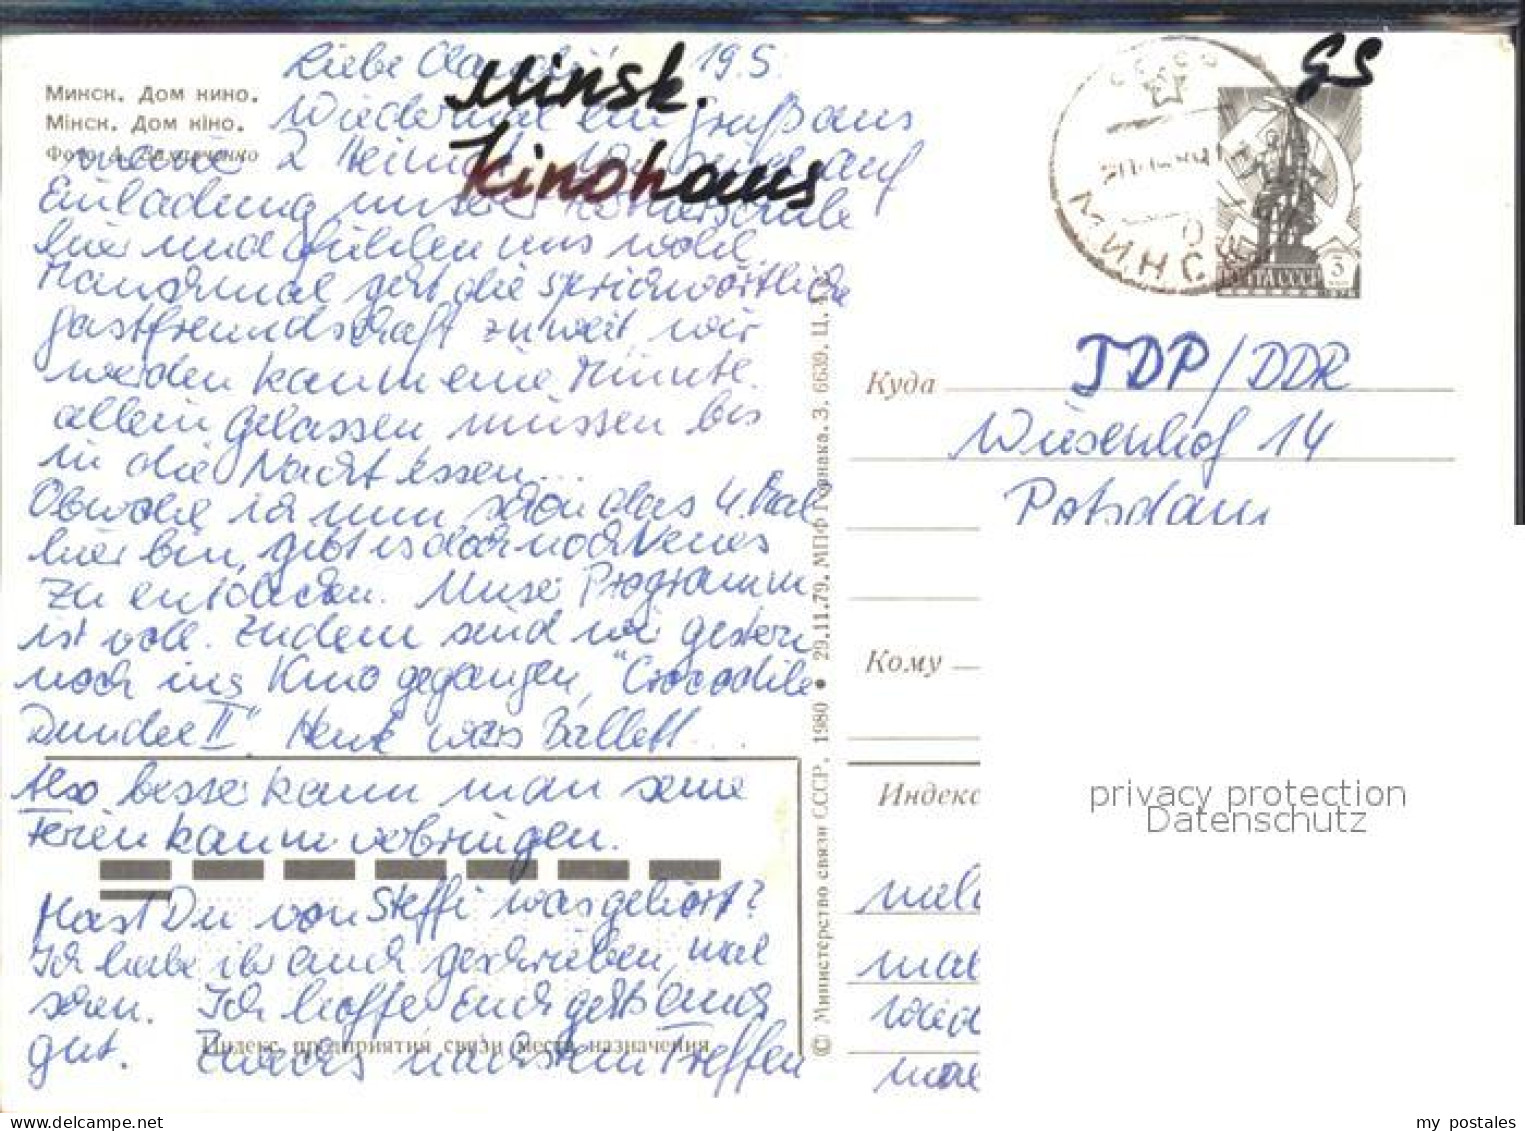 Минск. Дом кино.
Мінск. Дом кіно.
Фото А.
Minsk.
Kinohaus
GS
Liebe 19.5.
Wiedermal ein Gruß aus
meine 2 Heimat. auf
Einladung unserer
hier und fühlen uns wohl.
Manchmal geht die sprichwörtliche
Gastfreundschaft zu weit, wir
werden kaum eine Minute
allein gelassen, müssen bis
in die Nacht essen...
Obwohl ich nun schon das 4. Mal
hier bin, gibt es doch noch Neues
zu entdecken. Unser Programm
ist voll. Zudem sind wir gestern
noch ins Kino gegangen, "Crocodile
Dundee II". Heute war's Ballett...
Also besser kann man seine
Ferien kaum verbringen.
Hast Du von Steffi was gehört?
Ich habe ihr auch geschrieben, mal
sehen. Ich hoffe, Euch geht's auch
gut. nächsten Treffen
Индекс предприятия связи места назначения
© Министерство связи СССР. 1980 • 29.11.79. МПФ Гознака. З. 6639. Ц.
МИНСК
ПОЧТА СССР
3
Куда
ГДР/DDR
Wiesenhof 14
Potsdam
Кому
Индекс
mal
privacy protection
Datenschutz
my postales